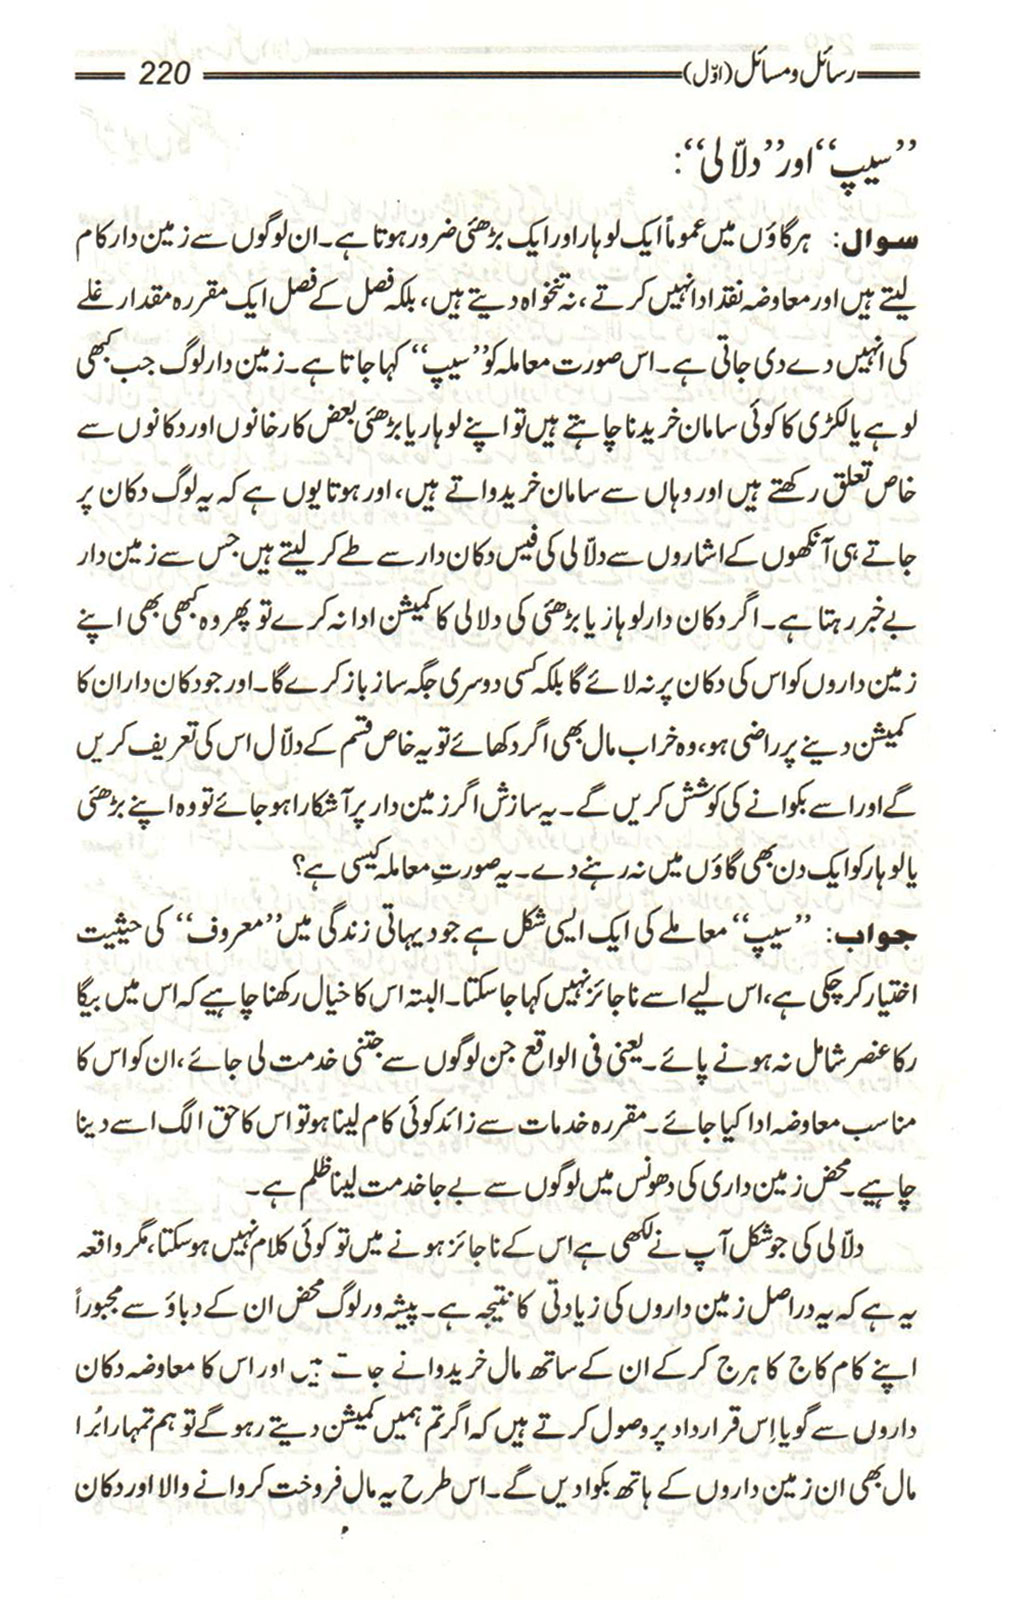 رسائل و مسائل (اوّل) 220
”سیپ“ اور ”دلّالی“:
سوال: ہر گاؤں میں عموماً ایک لوہار اور ایک بڑھئی ضرور ہوتا ہے۔ ان لوگوں سے زمین دار کام
لیتے ہیں اور معاوضہ نقد ادا نہیں کرتے، نہ تنخواہ دیتے ہیں، بلکہ فصل کے فصل ایک مقررہ مقدار غلے
کی انہیں دے دی جاتی ہے۔ اس صورت معاملہ کو ”سیپ“ کہا جاتا ہے۔ زمین دار لوگ جب کبھی
لوہے یا لکڑی کا کوئی سامان خریدنا چاہتے ہیں تو اپنے لوہار یا بڑھئی بعض کارخانوں اور دکانوں سے
خاص تعلق رکھتے ہیں اور وہاں سے سامان خریدواتے ہیں، اور ہوتا یوں ہے کہ یہ لوگ دکان پر
جاتے ہی آنکھوں کے اشاروں سے دلّالی کی فیس دکان دار سے طے کر لیتے ہیں جس سے زمین دار
بے خبر رہتا ہے۔ اگر دکان دار لوہار یا بڑھئی کی دلالی کا کمیشن ادا نہ کرے تو پھر وہ کبھی بھی اپنے
زمین داروں کو اس کی دکان پر نہ لائے گا بلکہ کسی دوسری جگہ ساز باز کرے گا۔ اور جو دکان دار ان کا
کمیشن دینے پر راضی ہو، وہ خراب مال بھی اگر دکھائے تو یہ خاص قسم کے دلّال اس کی تعریف کریں
گے اور اسے بکوانے کی کوشش کریں گے۔ یہ سازش اگر زمین دار پر آشکارا ہو جائے تو وہ اپنے بڑھئی
یا لوہار کو ایک دن بھی گاؤں میں نہ رہنے دے۔ یہ صورتِ معاملہ کیسی ہے؟
جواب: ”سیپ“ معاملے کی ایک ایسی شکل ہے جو دیہاتی زندگی میں ”معروف“ کی حیثیت
اختیار کر چکی ہے، اس لیے اسے ناجائز نہیں کہا جا سکتا۔ البتہ اس کا خیال رکھنا چاہیے کہ اس میں بیگا
ر کا عنصر شامل نہ ہونے پائے۔ یعنی فی الواقع جن لوگوں سے جتنی خدمت لی جائے، ان کو اس کا
مناسب معاوضہ ادا کیا جائے۔ مقررہ خدمات سے زائد کوئی کام لینا ہو تو اس کا حق الگ اسے دینا
چاہیے۔ محض زمین داری کی دھونس میں لوگوں سے بے جا خدمت لینا ظلم ہے۔
دلّالی کی جو شکل آپ نے لکھی ہے اس کے ناجائز ہونے میں تو کوئی کلام نہیں ہو سکتا، مگر واقعہ
یہ ہے کہ یہ دراصل زمین داروں کی زیادتی کا نتیجہ ہے۔ پیشہ ور لوگ محض ان کے دباؤ سے مجبوراً
اپنے کام کاج کا ہرج کر کے ان کے ساتھ مال خریدوانے جاتے ہیں اور اس کا معاوضہ دکان
داروں سے گویا اِس قرارداد پر وصول کرتے ہیں کہ اگر تم ہمیں کمیشن دیتے رہو گے تو ہم تمہارا بُرا
مال بھی ان زمین داروں کے ہاتھ بکوا دیں گے۔ اس طرح یہ مال فروخت کروانے والا اور دکان